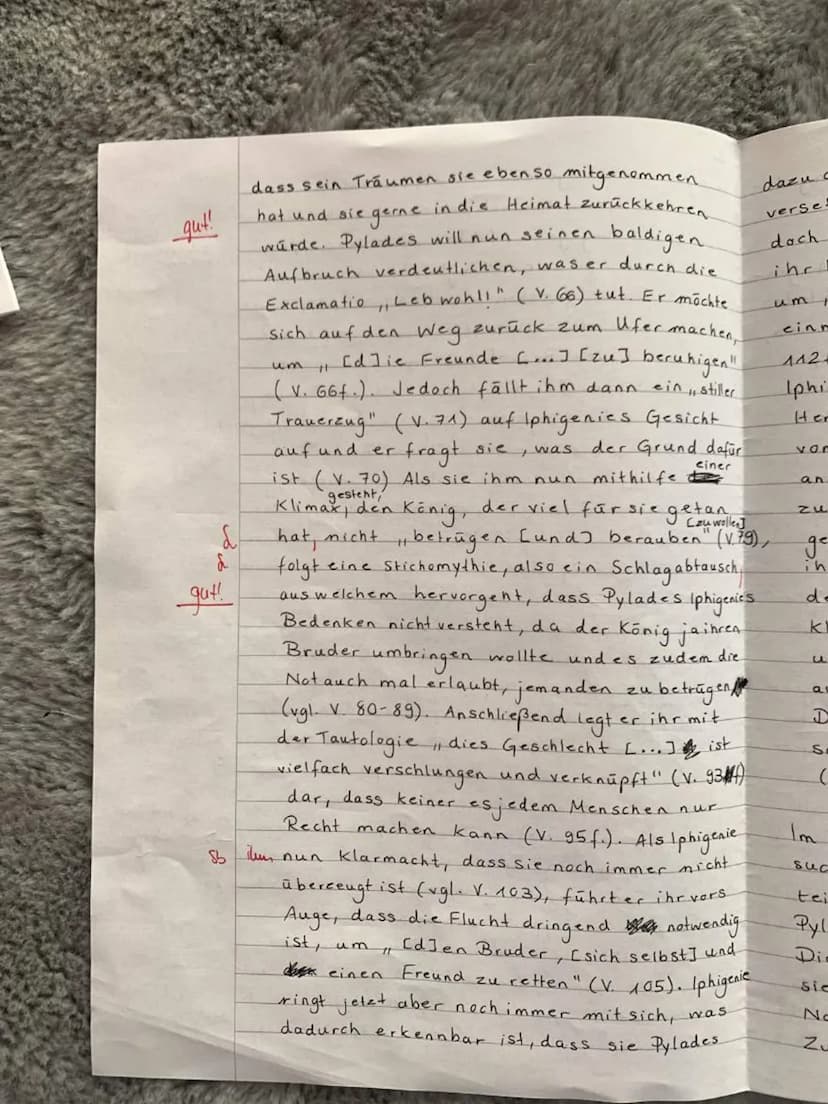 dass sein Träumen sie ebenso mitgenommen
gut! hat und sie gerne in die Heimat zurückkehren
würde. Pylades will nun seinen baldigen
Aufbruch verdeutlichen, was er durch die
Exclamatio „Leb wohl!" (V. 66) tut. Er möchte
sich auf den Weg zurück zum Ufer machen,
um „[d]ie Freunde [...] [zu] beruhigen"
(V. 66f.). Jedoch fällt ihm dann ein „stiller
Trauerzug" (V. 71) auf Iphigenies Gesicht
auf und er fragt sie, was der Grund dafür
ist (V. 70) Als sie ihm nun mithilfe einer
Klimax gesteht, den König, der viel für sie getan
hat, nicht „betrügen [und] berauben" [zu wollen] (V. 79),
folgt eine Stichomythie, also ein Schlagabtausch,
gut! aus welchem hervorgeht, dass Pylades Iphigenies
Bedenken nicht versteht, da der König ja ihren
Bruder umbringen wollte und es zudem die
Not auch mal erlaubt, jemanden zu betrügen
(vgl. V. 80-89). Anschließend legt er ihr mit
der Tautologie „dies Geschlecht [...] ist
vielfach verschlungen und verknüpft" (V. 93)
dar, dass keiner es jedem Menschen nur
Recht machen kann (V. 95f.). Als Iphigenie
Sb ihm nun klarmacht, dass sie noch immer nicht
überzeugt ist (vgl. V. 103), führt er ihr vors
Auge, dass die Flucht dringend notwendig
ist, um „[d]en Bruder, [sich selbst] und
einen Freund zu retten" (V. 105). Iphigenie
ringt jetzt aber noch immer mit sich, was
dadurch erkennbar ist, dass sie Pylades
dazu
verse
doch
ihr
um
einn
112
Iphi
Her
vor
an
zu
ge
ih
de
kl
u
a
D
s
(
Im
suc
tei
Pyl
Di
sie
No
Zu